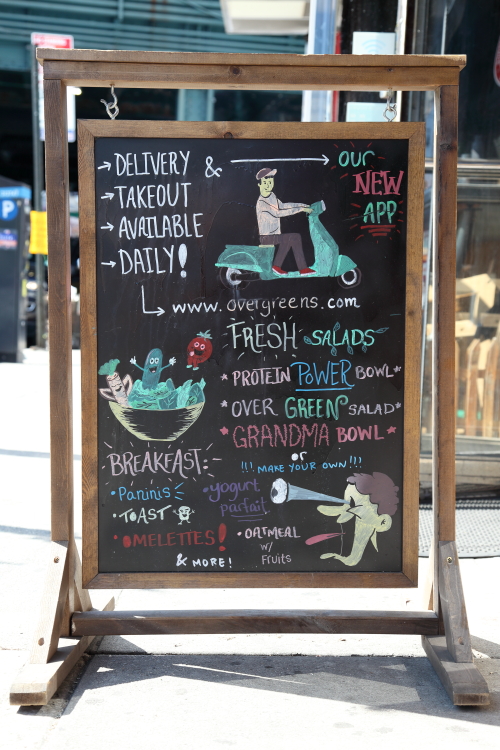 →DELIVERY & → our
→TAKEOUT NEW
→AVAILABLE APP
→DAILY!
www.overgreens.com
FRESH SALADS
*PROTEIN POWER BOWL*
*OVER GREEN SALAD*
*GRANDMA BOWL*
or
!!! MAKE YOUR OWN!!!
BREAKFAST:
•Paninis
•TOAST
•OMELETTES!
& MORE!
•yogurt
parfait
•OATMEAL
w/
Fruits
P